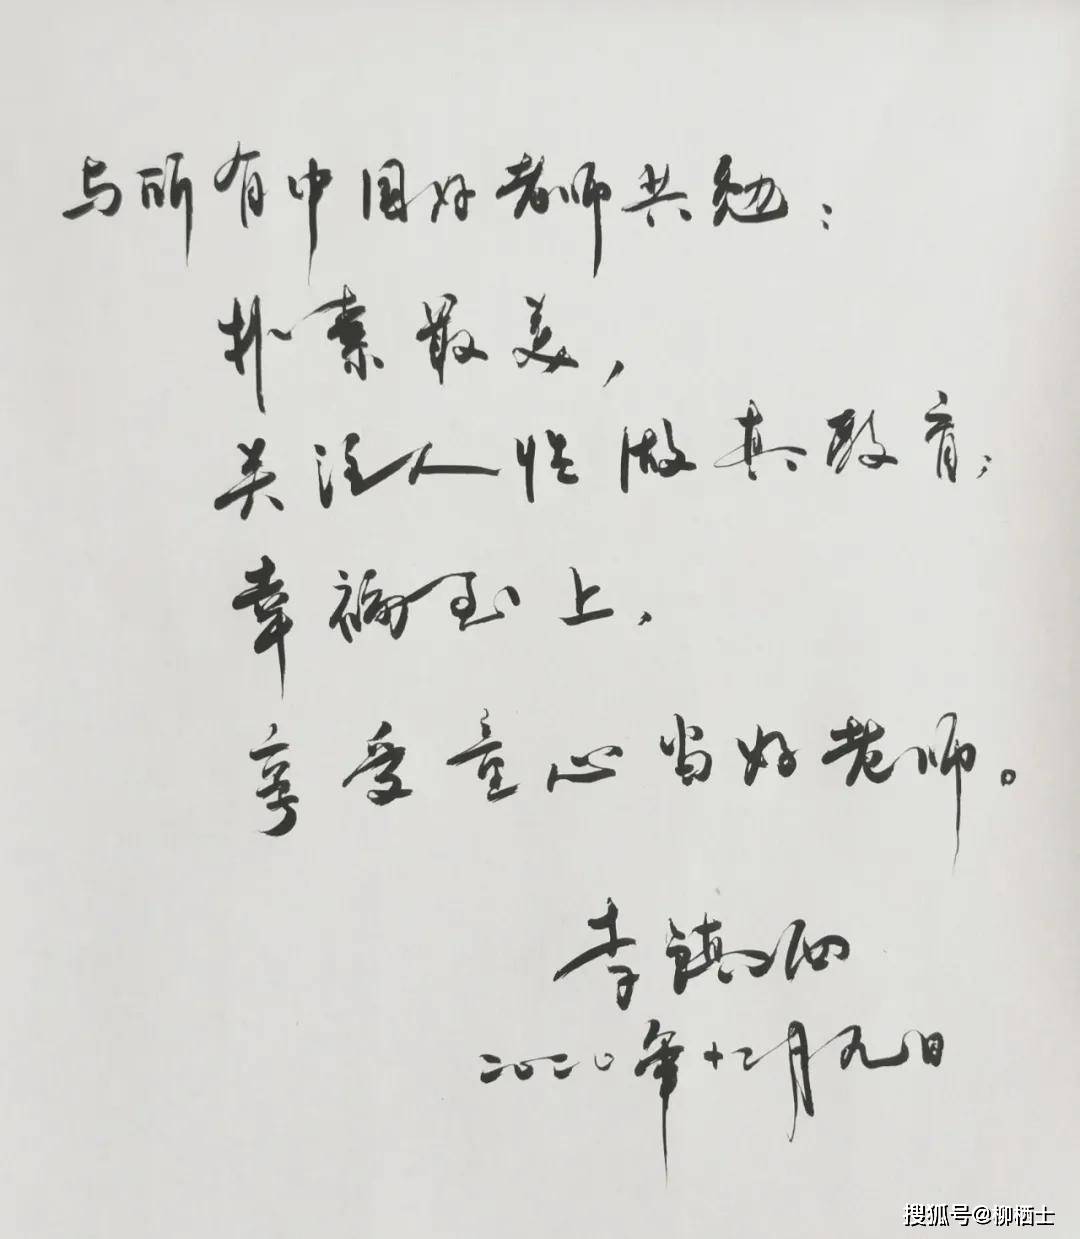 与所有中国好老师共勉：
朴素最美，
关注人性做真教育；
幸福至上，
享受童心当好老师。
李镇西
二〇二〇年十二月九日
搜狐号@柳栖士